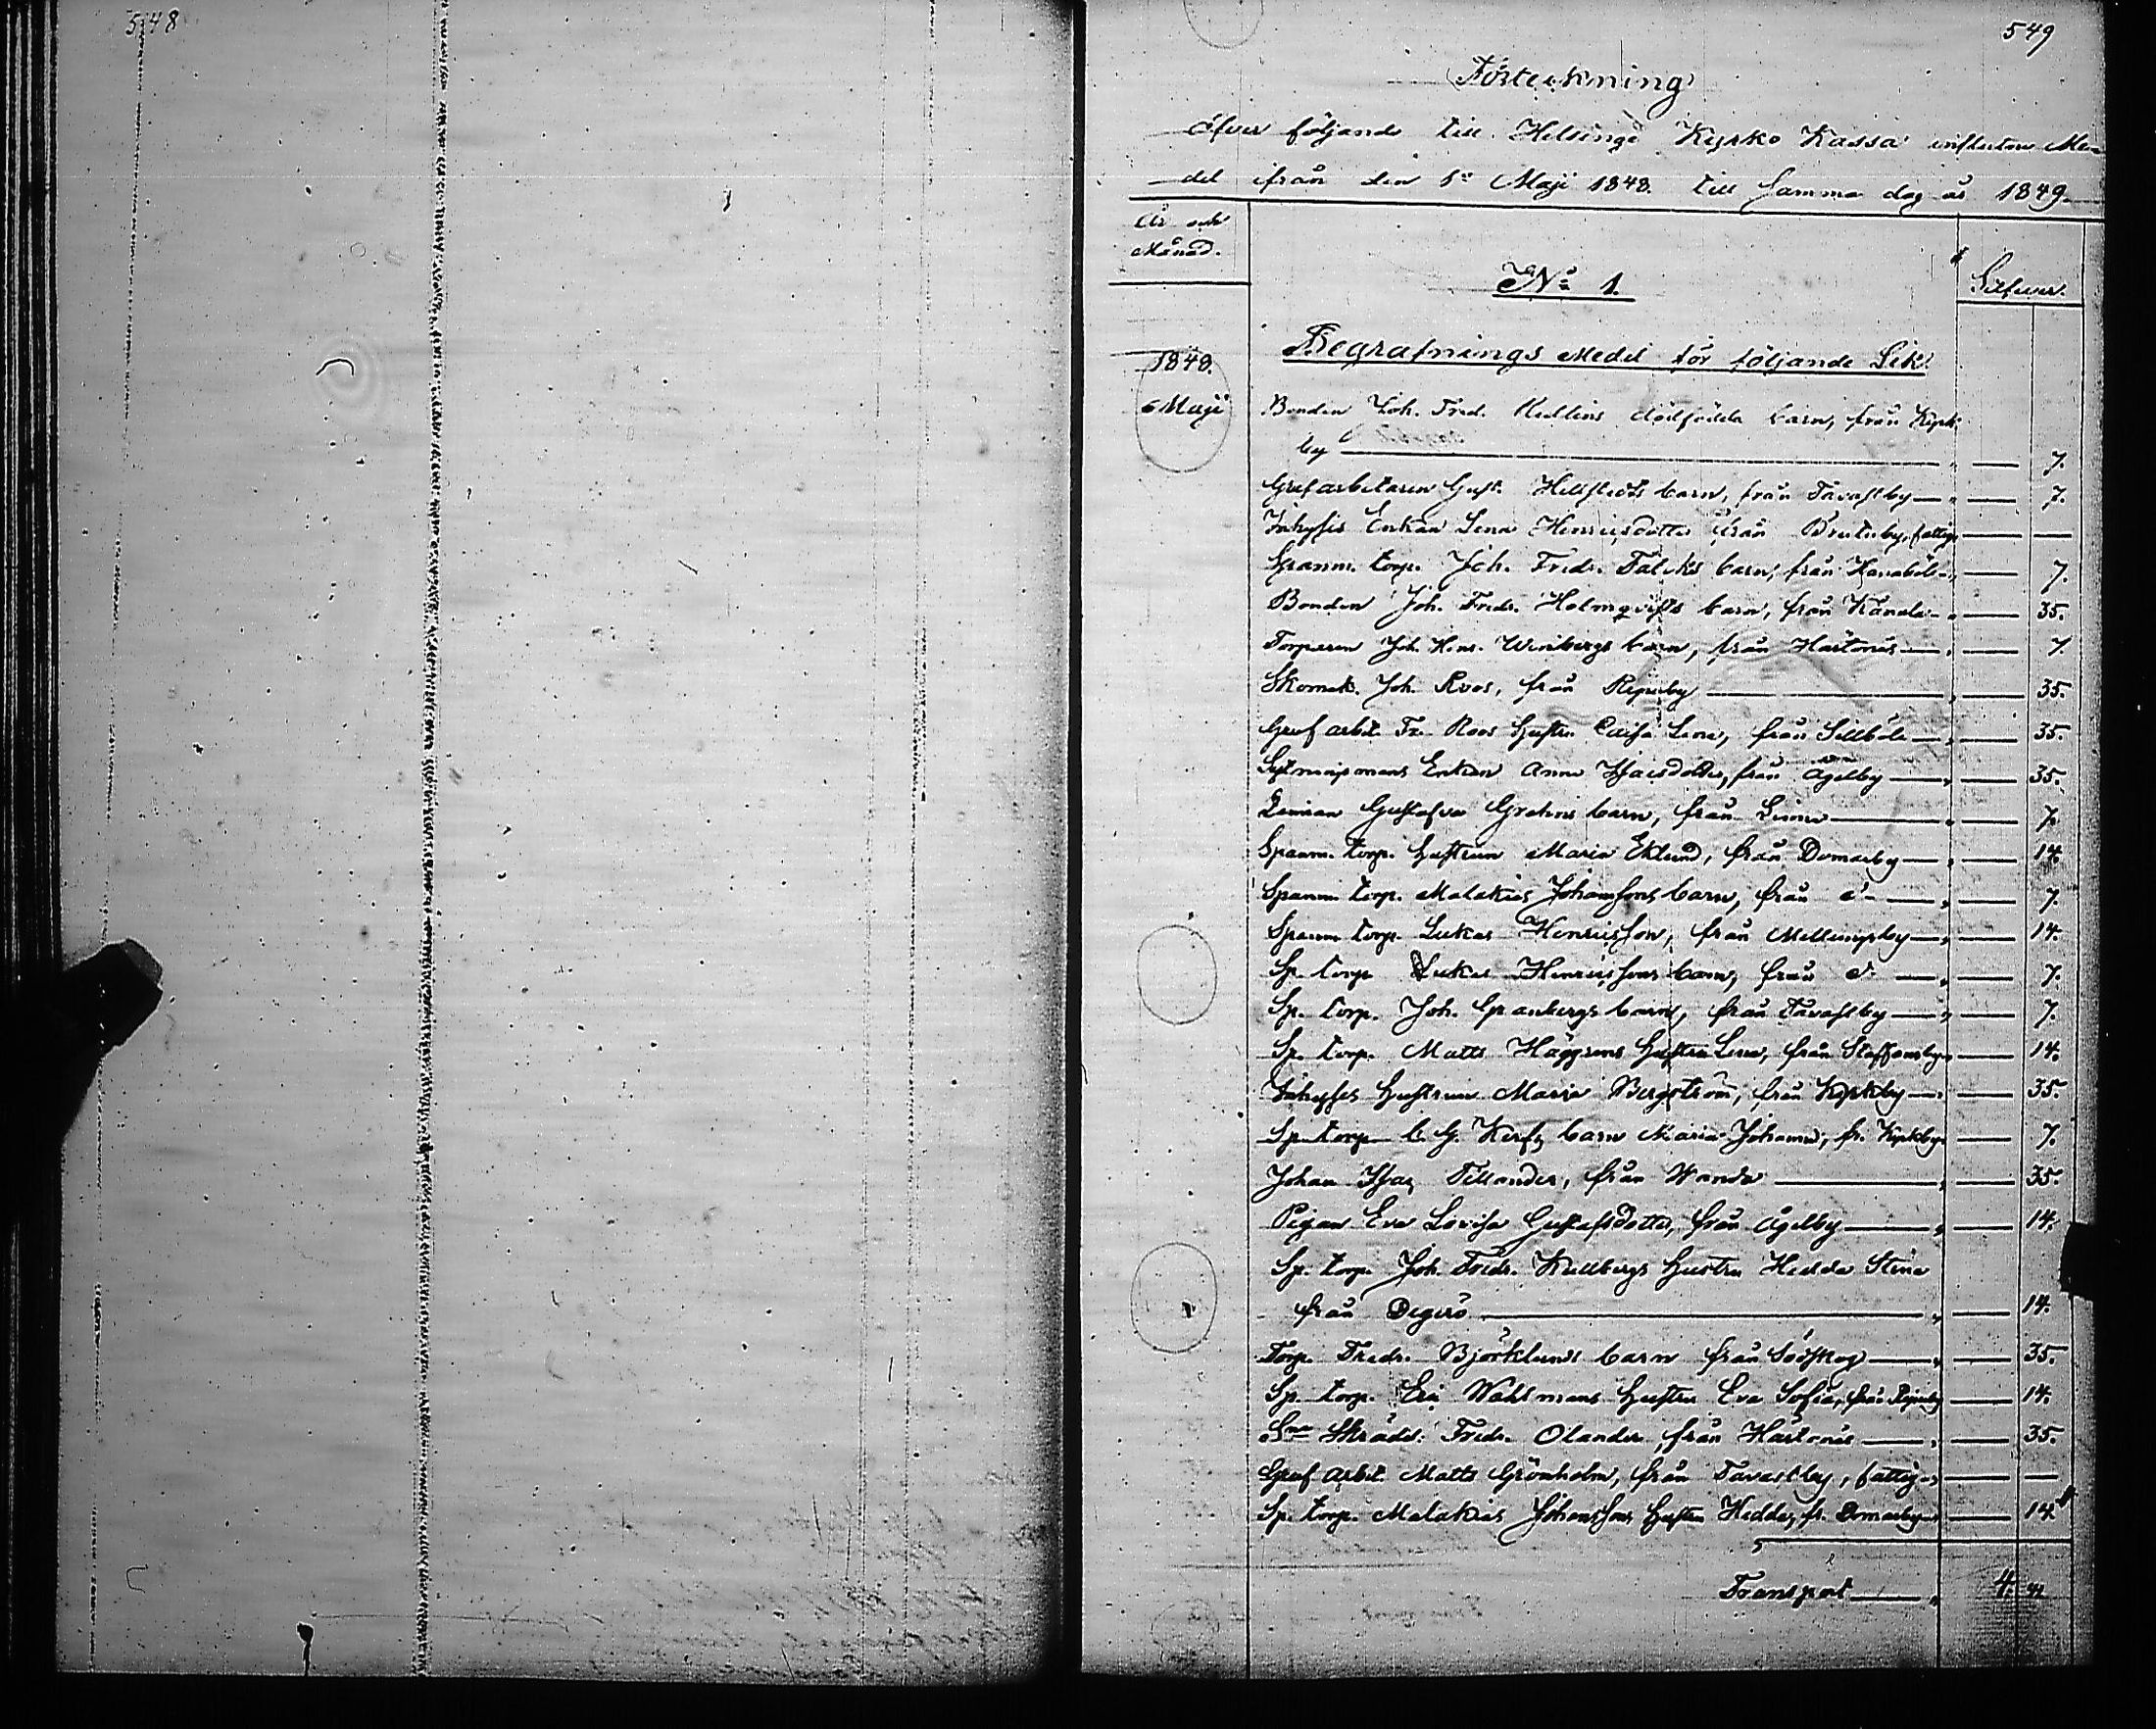 548
549
Förteckning
öfver följande till Helsinge Kyrko Kassa influtne Me=
del ifrån den 1sta Maji 1848. till samma dag år 1849.
År och
Månad.
No 1.
Silfver.
Begrafnings Medel för följande Lik.
1848.
6 Maji Bonden Joh. Fred. dödfödda barn, från Kyrk
by 7.
Grufarbetaren Gust. Hellstedts barn, från Tavastby 7.
Inhyses Enkan Lena Henricsdotter från Bruteby, fattig
Spanm. torp. Joh. Fredr. Falcks barn, från Hanaböle 7.
Bonden Joh. Fredr. Holmqvists barn, från Kånala 35.
Torparen Joh. Henr. Winbergs barn, från Härtonäs 7
Skomak. Joh. Roos, från Ripuby 35.
Gruf arbet. Fr. Roos hustru Caisa Lena, från Sillböle 35.
Sytningsmans Enkan Anna Isacsdotter, från Ågelby 35.
Gustafva barn, från 7.
Spanm. torp. hustrun Maria Eklund, från Domarby 14.
Spanm. torp. Malakias Johanssons barn, från d:o 7.
Spanm. torp. Lukas Henricsson, från Mellungsby 14.
Sp. torp. Lukas Henricssons barn, från d:o 7.
Sp. torp. Joh. Granbergs barn, från Tavastby 7.
Sp. torp. Matts Häggrens hustru Lena, från Staffansby 14.
Inhyses hustrun Maria Bergström, från Kyrkby 35.
Sp. torp. C. G. barn Maria Johanna, fr. Kyrkby 7.
Johan Isac Tillander, från Wanda 35.
Pigan Eva Lovisa Gustafsdotter, från Ågelby 14.
Sp. torp. Joh. Fredr. Kullbergs hustru Hedda Stina
från Degerö 14.
Torp. Fredr. Björklunds barn från Sööskog 35.
Sp. torp. Eric Wahlmans hustru Eva Sofia, från Ripuby 14.
Skrädd. Fredr. Olander, från Härtonäs 35.
Gruf arbet. Matts Grönholm, från Tavastby, fattig
Sp. torp. Malakias Johanssons hustru Hedda, fr. Domarby 14.
Transport 4. 41.